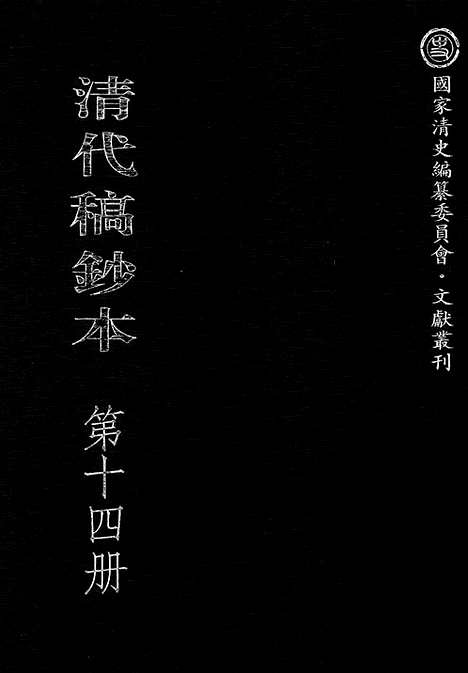 國家清史編纂委員會·文獻叢刊
清代稿鈔本 第十四册